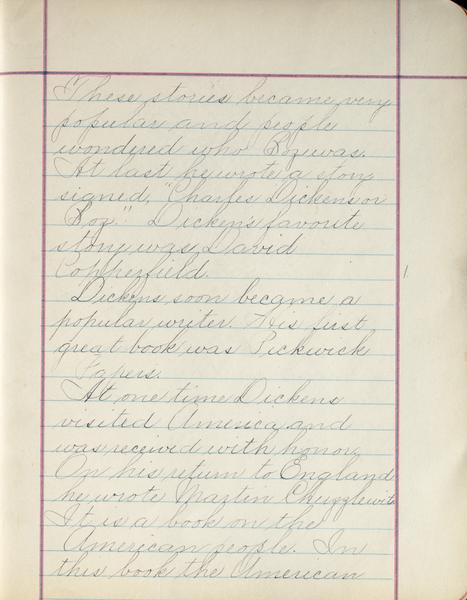 These stories became very
popular and people
wondered who Boz was.
At last he wrote a story
signed, "Charles Dickens or
Boz." Dickens favorite
story was David
Copperfield.
Dickens soon became a
popular writer. His first
great book was Pickwick
Papers.
At one time Dickens
visited America and
was received with honor.
On his return to England
he wrote Martin Chuzzlewit.
It is a book on the
American people. In
this book the American